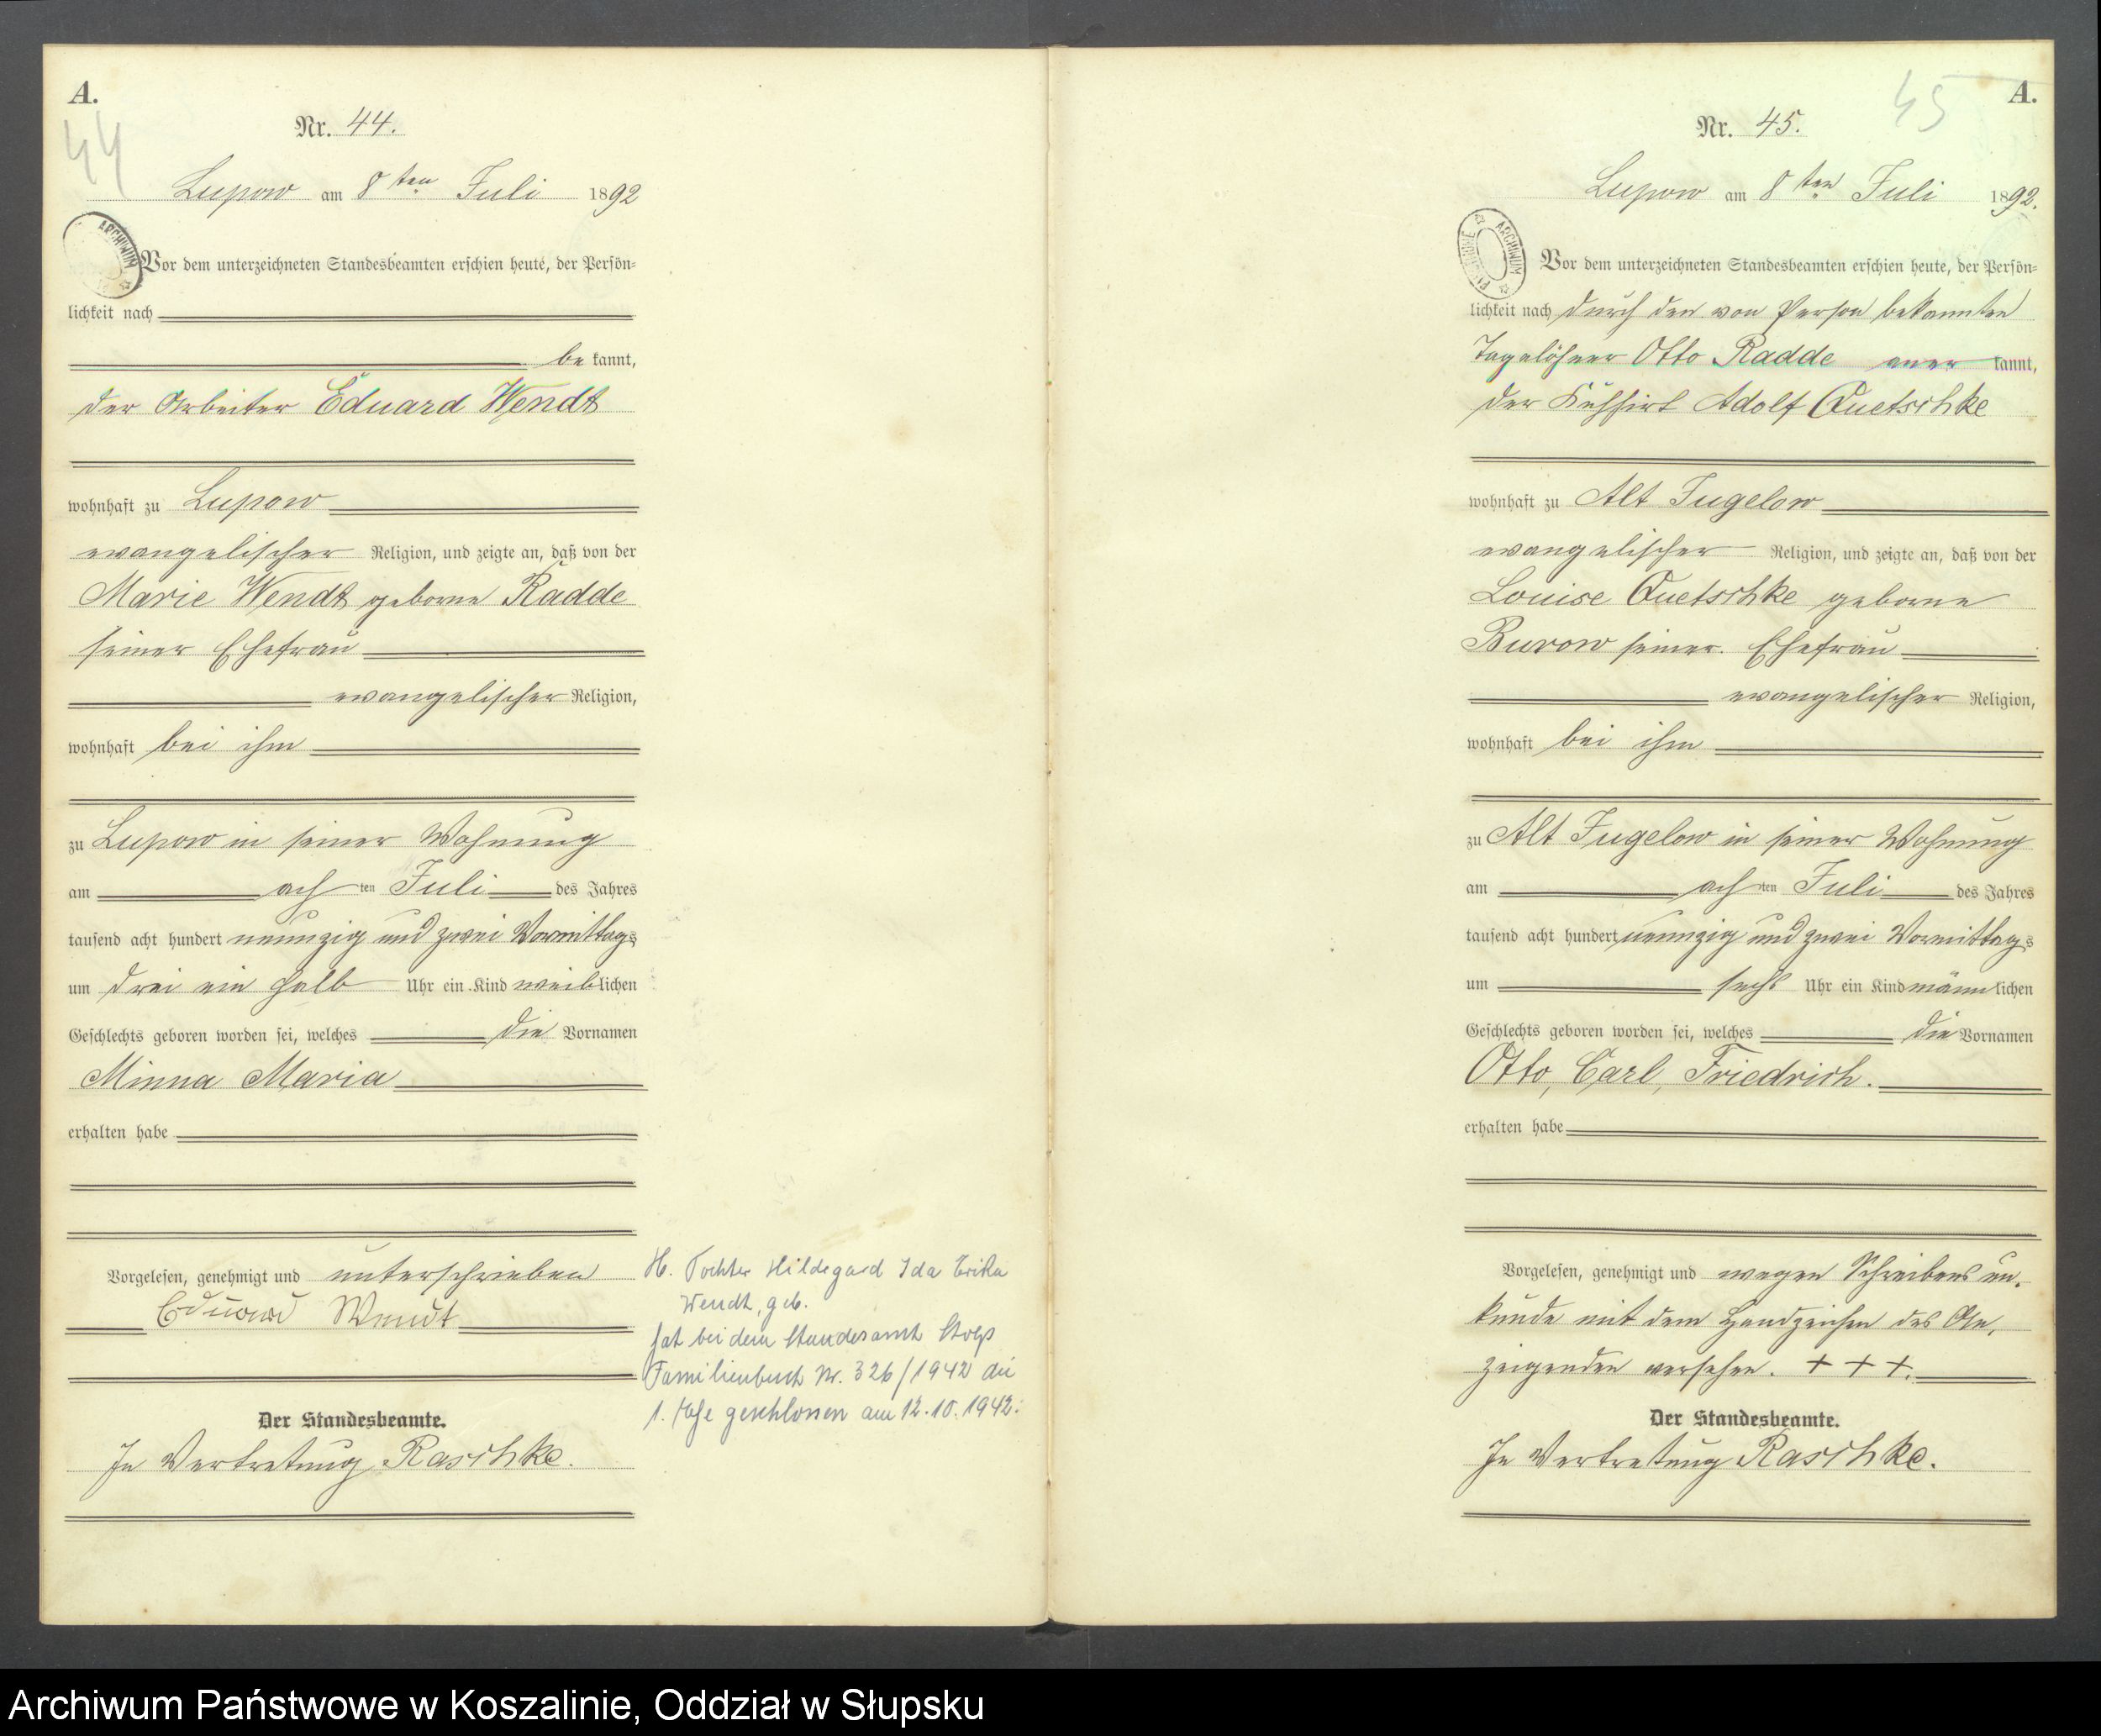 A.
44
Nr. 44.
Lupow am 8ten Juli 1892
ARCHIWUM
Vor dem unterzeichneten Standesbeamten erschien heute, der Persön-
lichkeit nach
be kannt,
der Arbeiter Eduard Wendt
wohnhaft zu Lupow
evangelischer Religion, und zeigte an, daß von der
Marie Wendt geborne Radde
seiner Ehefrau
evangelischer Religion,
wohnhaft bei ihm
zu Lupow in seiner Wohnung
am achten Juli des Jahres
tausend acht hundert neunzig und zwei Vormittags
um drei ein halb Uhr ein Kind weiblichen
Geschlechts geboren worden sei, welches die Vornamen
Minna Maria
erhalten habe
Vorgelesen, genehmigt und unterschrieben
Eduard Wendt
Der Standesbeamte.
In Vertretung Raschke.
H. Tochter Hildegard Ida Erika
Wendt, geb.
hat bei dem Standesamt Stolp
Familienbuch Nr. 326/1942 die
1. Ehe geschlossen am 12.10.1942.
45
A.
Nr. 45.
Lupow am 8ten Juli 1892.
ARCHIWUM
Vor dem unterzeichneten Standesbeamten erschien heute, der Persön-
lichkeit nach durch den von Person bekannten
Tagelöhner Otto Radde aner kannt,
der Kuhhirt Adolf Quetschke
wohnhaft zu Alt Jugelow
evangelischer Religion, und zeigte an, daß von der
Louise Quetschke geborne
Burow seiner Ehefrau
evangelischer Religion,
wohnhaft bei ihm
zu Alt Jugelow in seiner Wohnung
am achten Juli des Jahres
tausend acht hundert neunzig und zwei Vormittags
um sechs Uhr ein Kind männlichen
Geschlechts geboren worden sei, welches die Vornamen
Otto, Carl, Friedrich.
erhalten habe
Vorgelesen, genehmigt und wegen Schreibens un-
kunde mit dem Handzeichen des An-
zeigenden versehen. + + +.
Der Standesbeamte.
In Vertretung Raschke.
Archiwum Państwowe w Koszalinie, Oddział w Słupsku